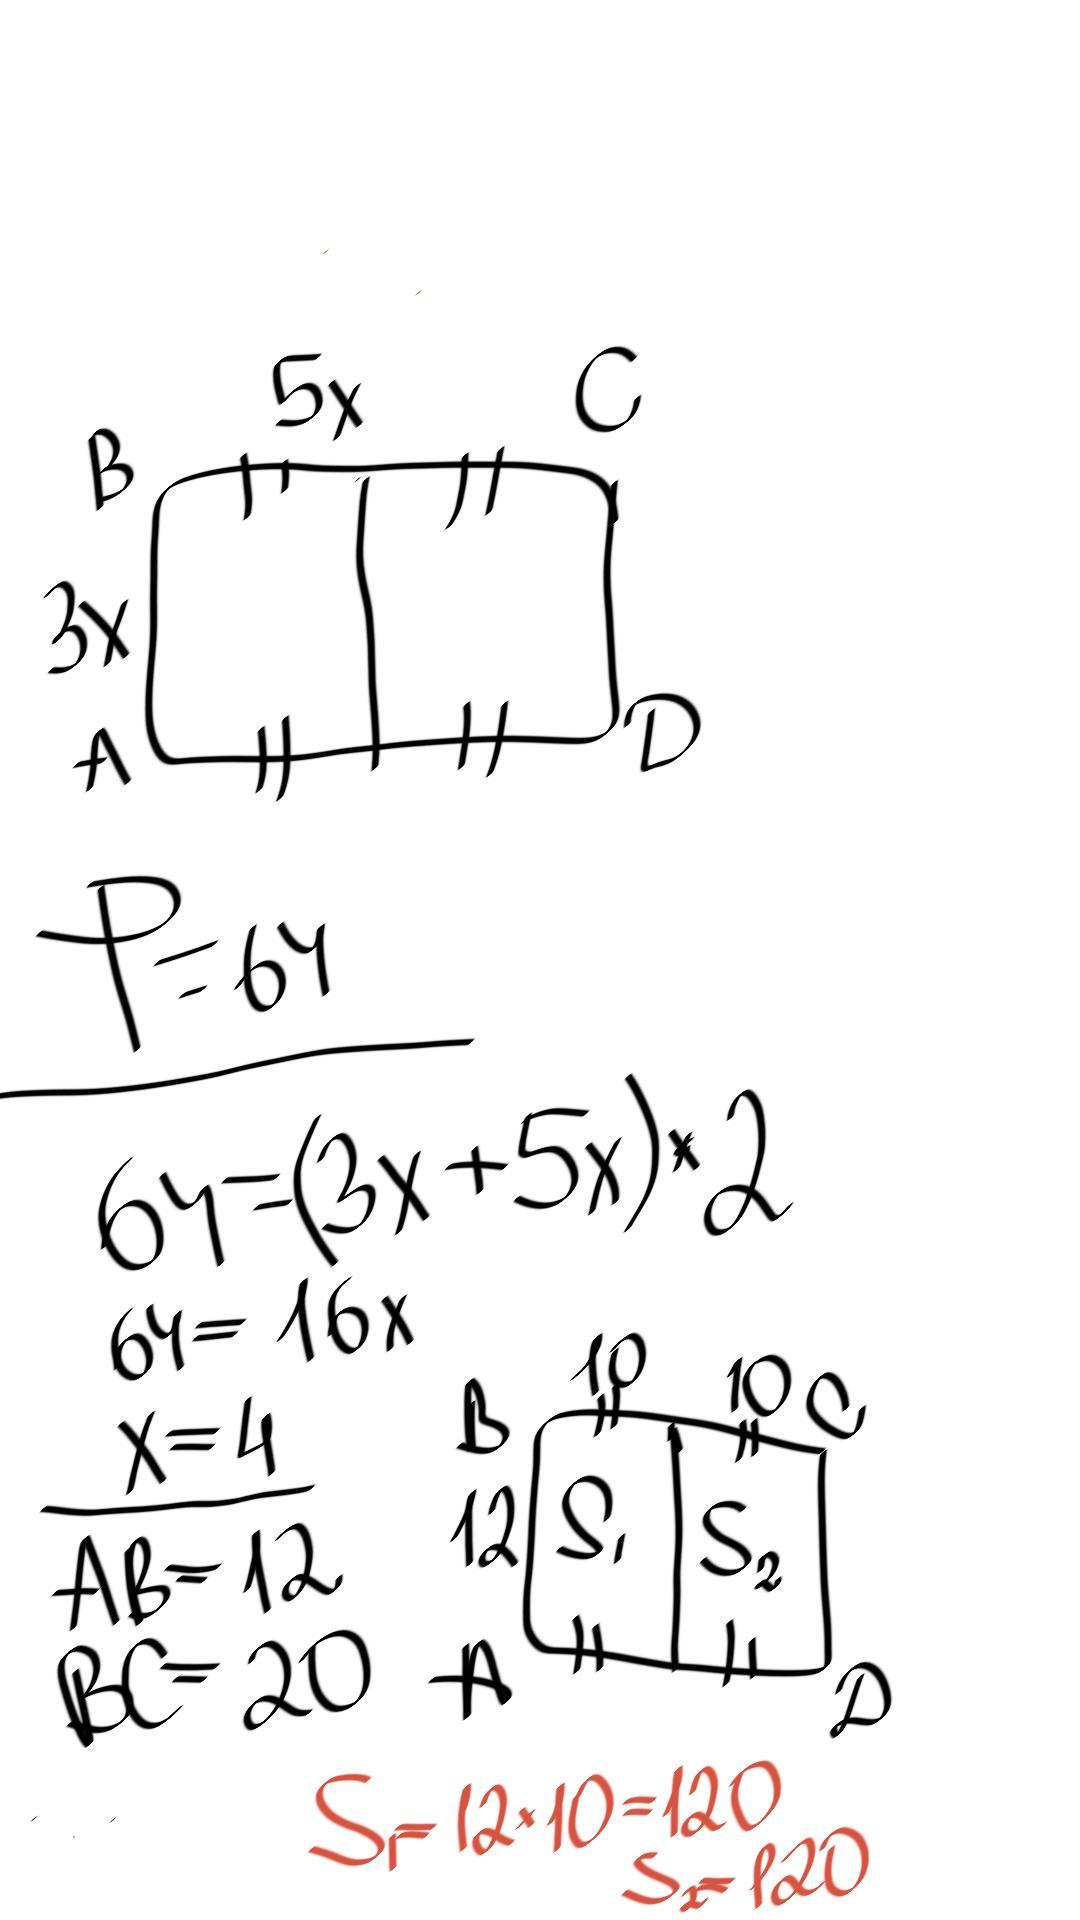 5x
B C
3x
A D
P=64
64=(3x+5x)*2
64=16x
x=4
AB=12
BC=20
10 10
B C
12 S₁ S₂
A D
S₁=12*10=120
S₂=120